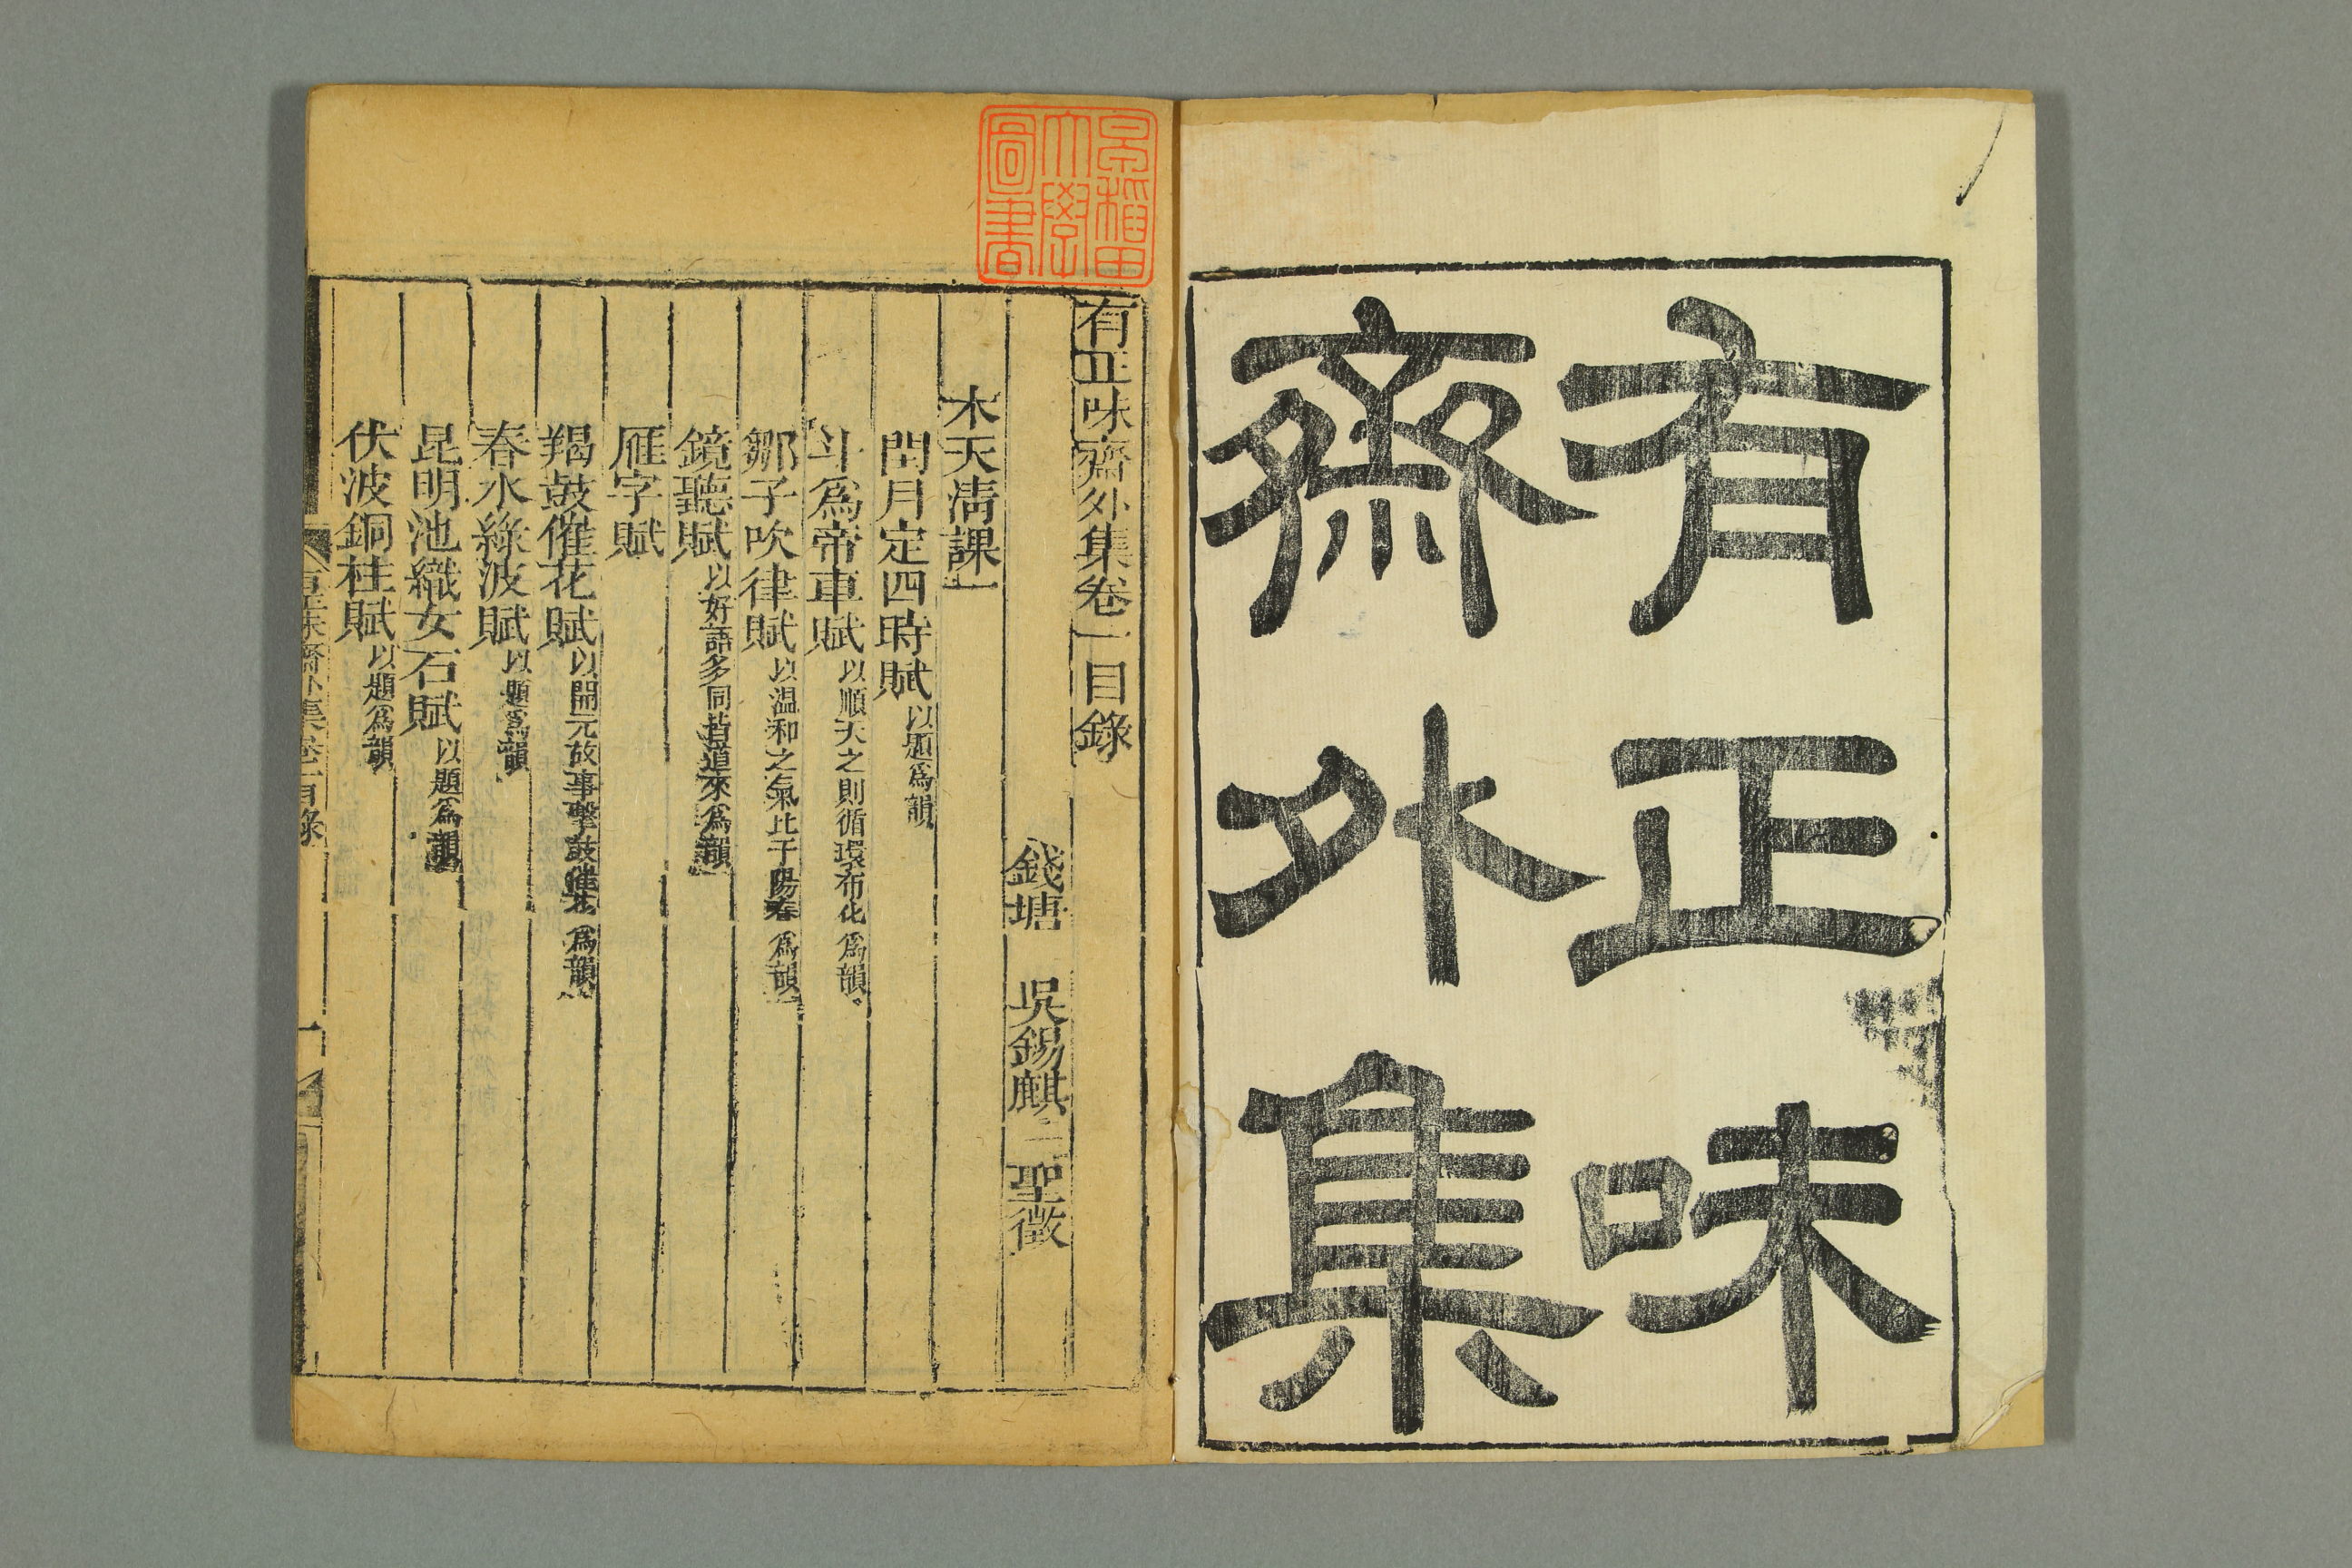 有正味
齋外集
早稲田
大學
圖書
有正味齋外集卷一目錄
錢塘 吳錫麒 聖徵
木天清課一
閏月定四時賦以題爲韻
斗爲帝車賦以順天之則循環布化爲韻
鄒子吹律賦以温和之氣比于陽春爲韻
鏡聽賦以好語多同昔道來爲韻
雁字賦
羯鼓催花賦以開元故事擊鼓催花爲韻
春水綠波賦以題爲韻
昆明池織女石賦以題爲韻
伏波銅柱賦以題爲韻
齋外集卷一目錄
一